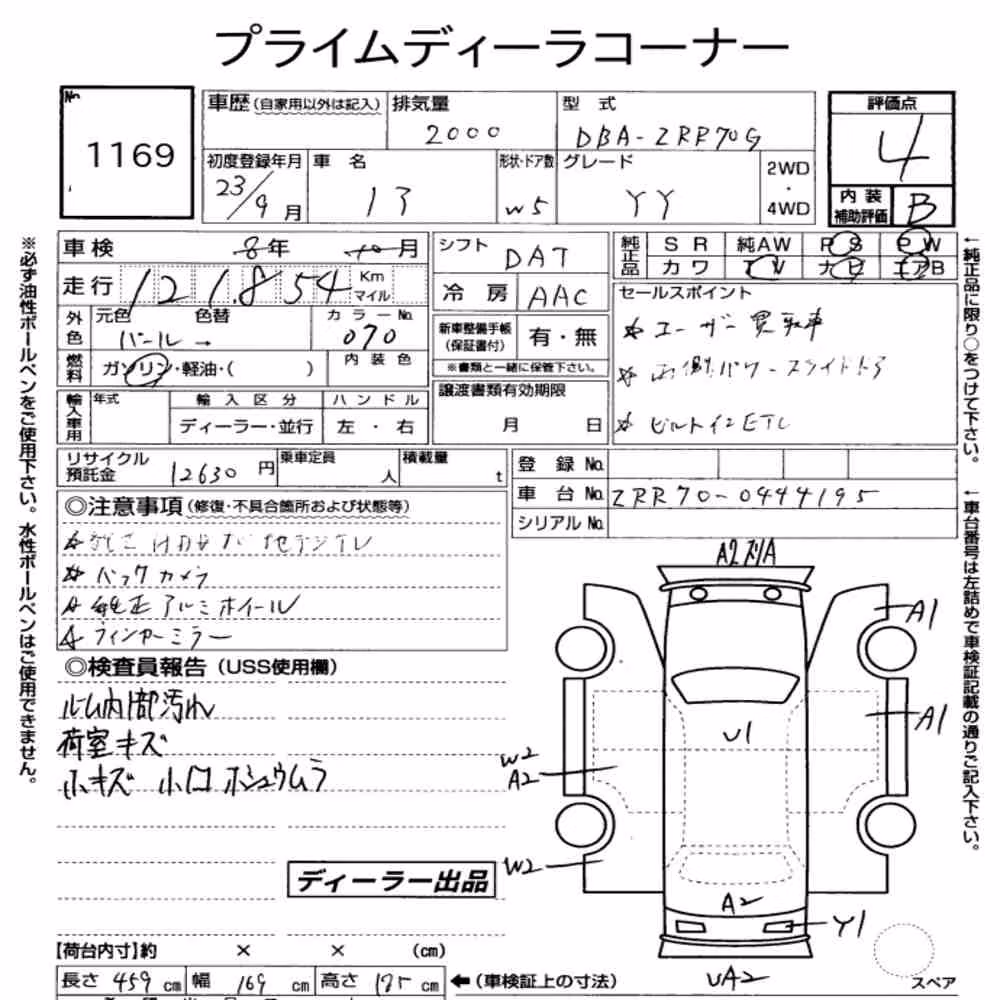 プライムディーラコーナー
No.
1169
車歴(自家用以外は記入)
排気量
2000
型 式
DBA-ZRR70G
評価点
4
初度登録年月
23/9月
車 名
形状・ドア数
W5
グレード
YY
2WD
・
4WD
内装
補助評価
B
車検 8年 月
走行 121,854 Km マイル
外色
元色 色替
パール →
カラーNo.
070
燃料
ガソリン・軽油・( )
内装色
輸入車用
年式
輸入区分
ディーラー・並行
ハンドル
左 ・ 右
シフト
DAT
冷 房
AAC
新車整備手帳
(保証書付)
有・無
※書類と一緒に保管下さい。
譲渡書類有効期限
月 日
純正品
SR 純AW PS PW
カワ TV ナビ エアB
セールスポイント
☆ ユーザー買取車
☆ 両側パワースライドドア
☆ ビルトインETC
リサイクル
預託金
12630 円
乗車定員
人
積載量
t
登 録 No.
車 台 No.
ZRR70-0444195
シリアル No.
◎注意事項(修復・不具合箇所および状態等)
☆ 地デジTV
☆ バックカメラ
☆ 純正アルミホイール
☆ ウィンカーミラー
◎検査員報告(USS使用欄)
ルーム内部汚れ
荷室キズ
小キズ 小凹 ホシュウムラ
ディーラー出品
A2 ズリA
A1
A1
U1
W2
A2
W2
A2
Y1
UA2
スペア
【荷台内寸】約 × × (cm)
長さ 459 cm 幅 169 cm 高さ 185 cm
←(車検証上の寸法)
※必ず油性ボールペンをご使用下さい。水性ボールペンはご使用できません。
←純正品に限り○をつけて下さい。
←車台番号は左詰めで車検証記載の通りご記入下さい。